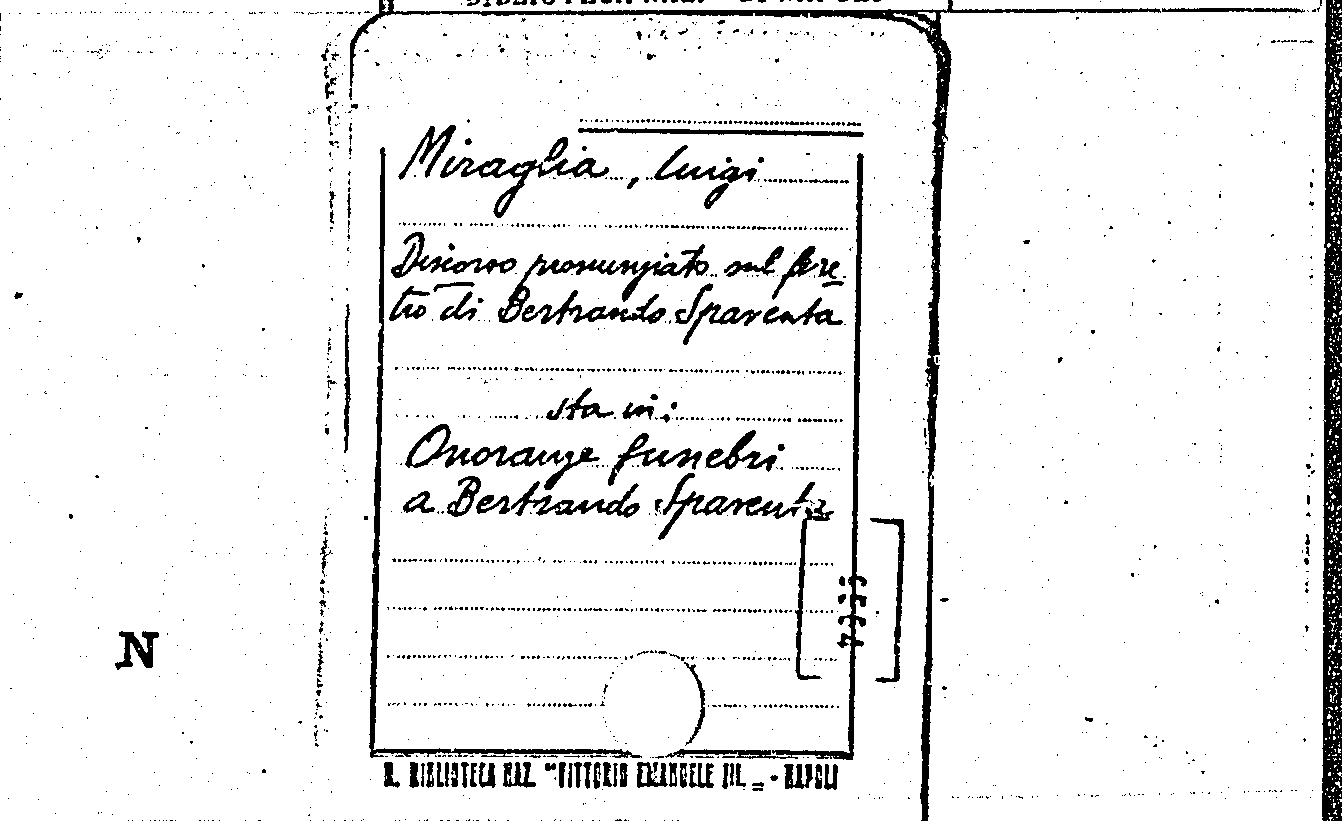 Miraglia, Luigi
Discorso pronunziato sul fere
tro di Bertrando Spaventa
sta in:
Onoranze funebri
a Bertrando Spaventa
N
R. BIBLIOTECA NAZ. "VITTORIO EMANUELE III. „ - NAPOLI